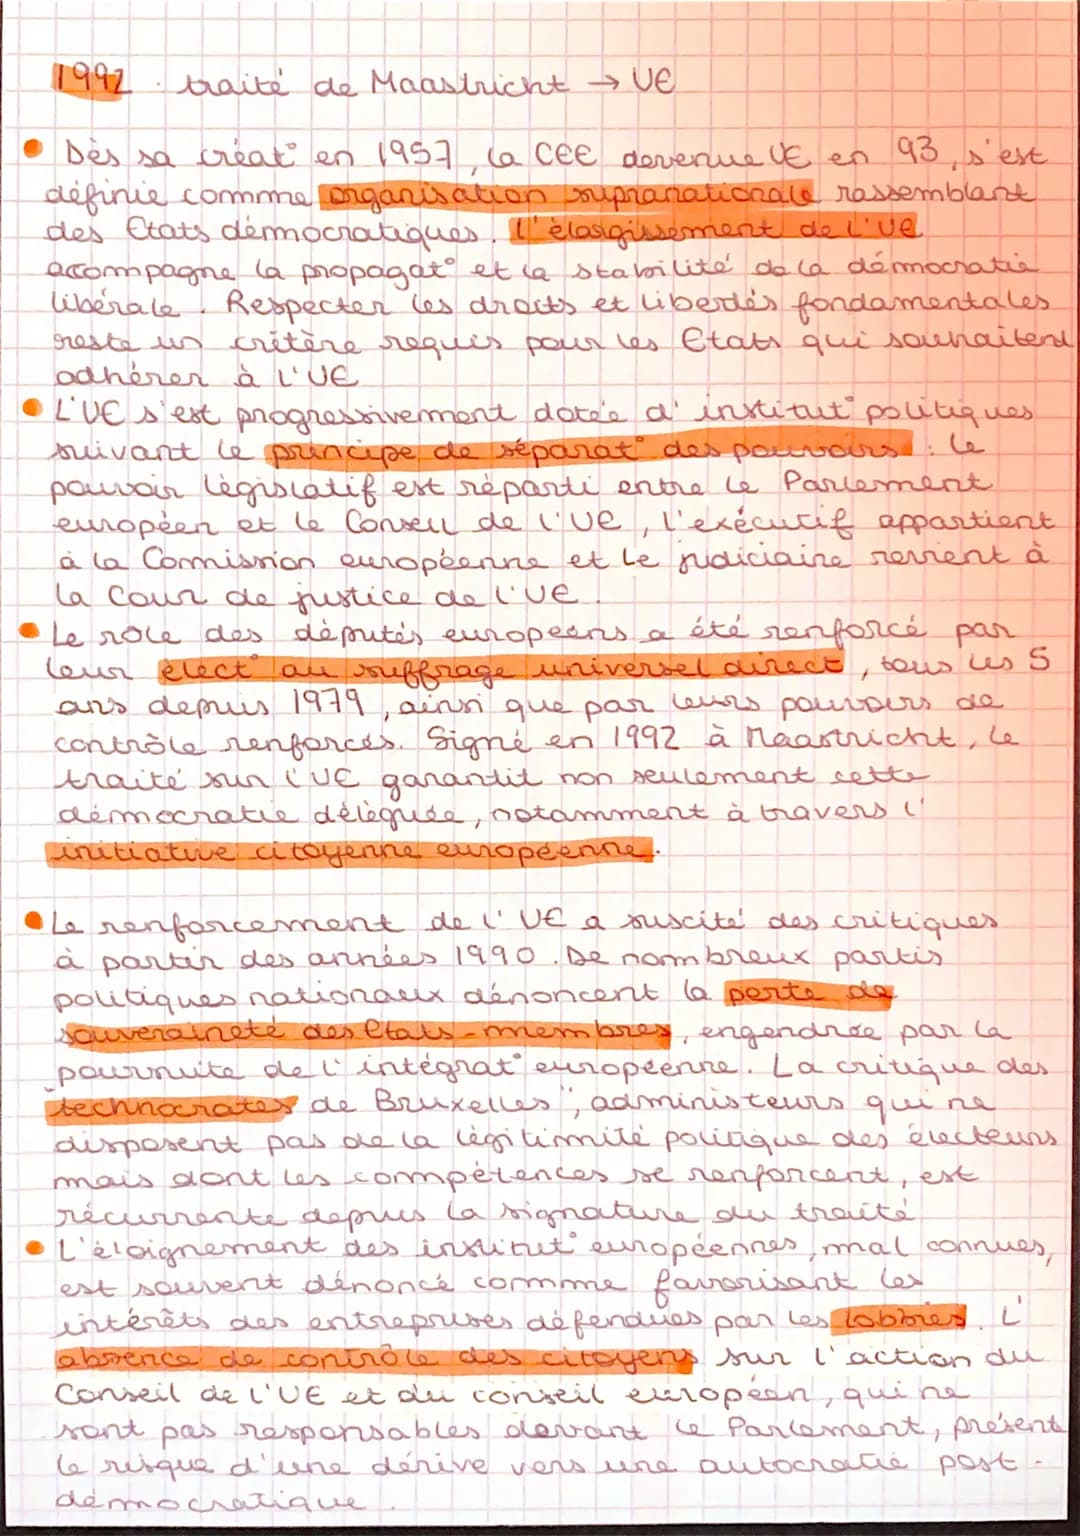 1992 : traité de Maastricht → UE
• Dès sa créat° en 1957, la CEE devenue UE en 93, s'est
définie comme organisation supranationale rassemblant
des Etats démocratiques. L'élargissement de l'UE
accompagne la propagat° et la stabilité de la démocratie
libérale. Respecter les droits et libertés fondamentales
reste un critère requis pour les Etats qui souhaitent
adhérer à l'UE
• L'UE s'est progressivement dotée d'institut° politiques
suivant le principe de séparat° des pouvoirs : le
pouvoir législatif est réparti entre le Parlement
européen et le Conseil de l'UE, l'exécutif appartient
à la Commission européenne et le judiciaire revient à
la Cour de justice de l'UE.
• Le role des députés européens a été renforcé par
leur élect° au suffrage universel direct, tous les 5
ans depuis 1979, ainsi que par leurs pouvoirs de
contrôle renforcés. Signé en 1992 à Maastricht, le
traité sur l'UE garantit non seulement cette
démocratie déléguée, notamment à travers l'
initiative citoyenne européenne.
• Le renforcement de l'UE a suscité des critiques
à partir des années 1990. De nombreux partis
politiques nationaux dénoncent la perte de
souveraineté des Etats-membres, engendrée par la
poursuite de l'intégrat° européenne. La critique des
"technocrates de Bruxelles", administeurs qui ne
disposent pas de la légitimité politique des électeurs
mais dont les compétences se renforcent, est
récurrente depuis la signature du traité
• L'éloignement des institut° européennes, mal connues,
est souvent dénoncé comme favorisant les
intérêts des entreprises défendues par les lobbies. L'
absence de contrôle des citoyens sur l'action du
Conseil de l'UE et du conseil européen, qui ne
sont pas responsables devant le Parlement, présent
le risque d'une dérive vers une autocratie post-
démocratique.